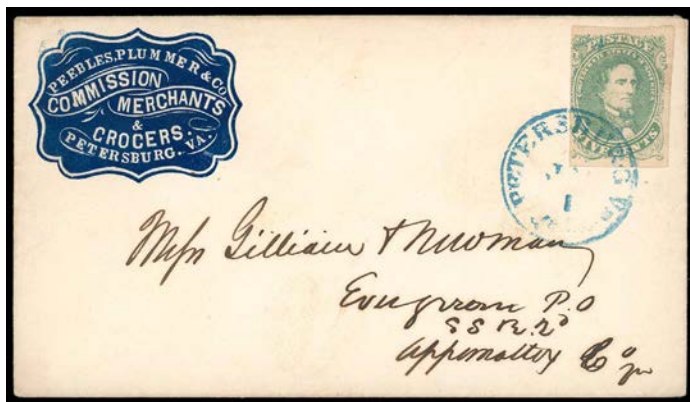 PEEBLES, PLUMMER & CO
COMMISSION
MERCHANTS
&
GROCERS.
PETERSBURG. VA.
POSTAGE
CONFEDERATE STATES OF AMERICA
FIVE CENTS
PETERSBURG VA
1
Messrs Gilliam & Newman
Evergreen P.O
S S R. Rd
Appomattox Co